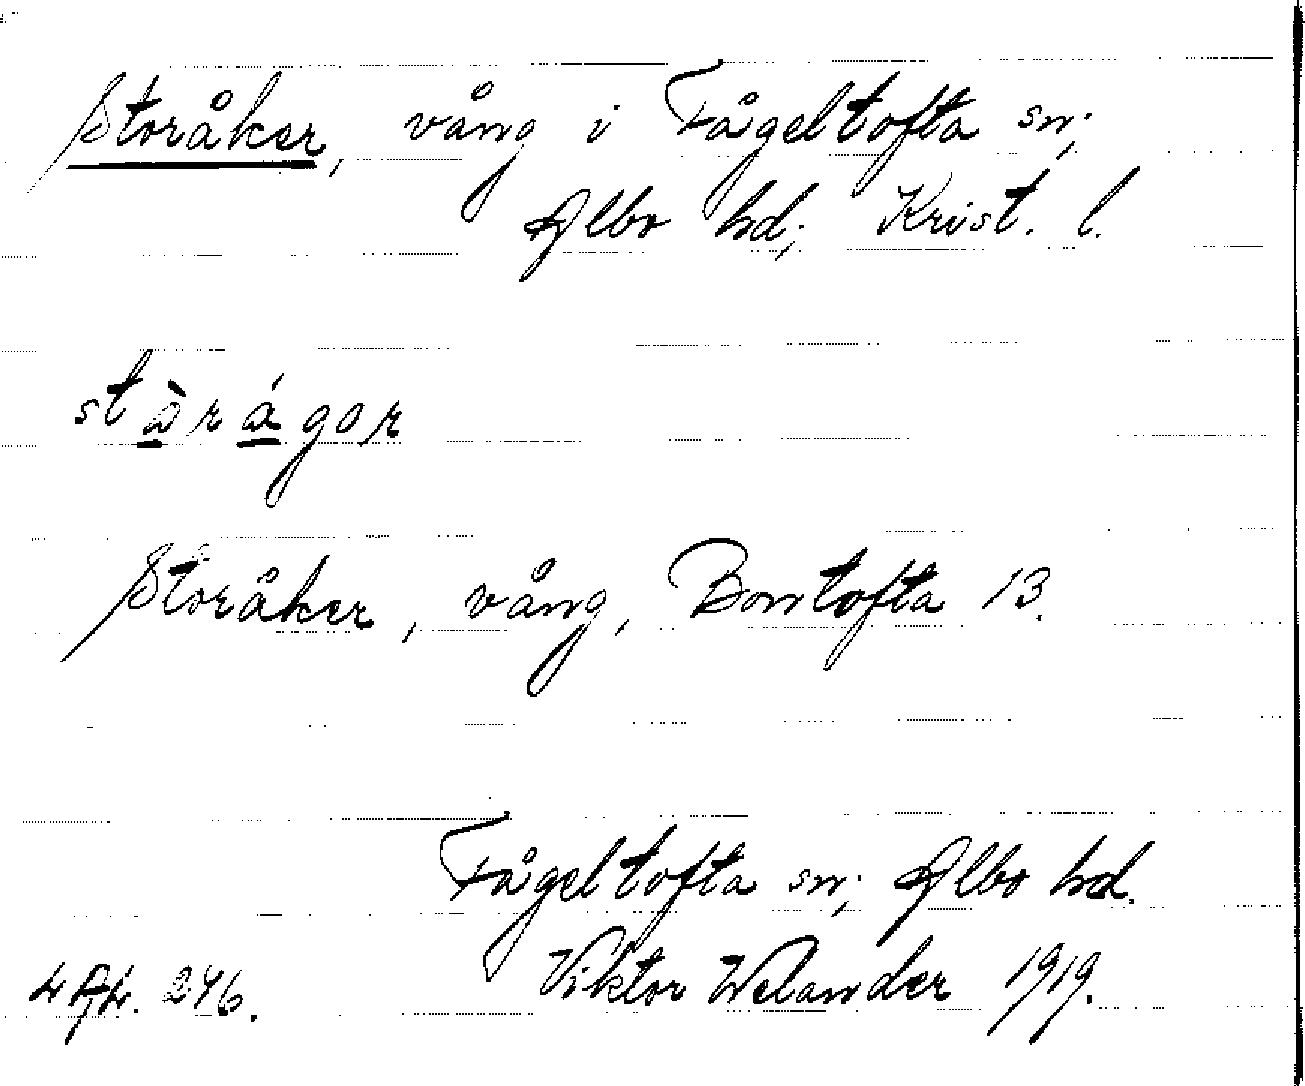 Storåker, vång i Fågeltofta sn;
Albo hd; Krist. l.
stòrágor
Storåker, vång, Bontofta 13.
Fågeltofta sn; Albo hd.
Viktor Welander 1919.
246.